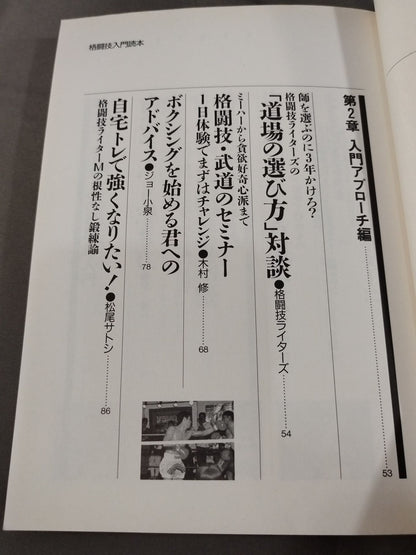 格闘技入門読本
第2章 入門アプローチ編……………53
師を選ぶのに3年かけろ?
格闘技ライターズの
「道場の選び方」対談●格闘技ライターズ……………54
ミーハーから貪欲好奇心派まで
格闘技・武道のセミナー
1日体験でまずはチャレンジ●木村 修……………68
ボクシングを始める君への
アドバイス●ジョー小泉……………78
自宅トレで強くなりたい!●松尾サトシ……………86
格闘技ライターMの根性なし鍛練論